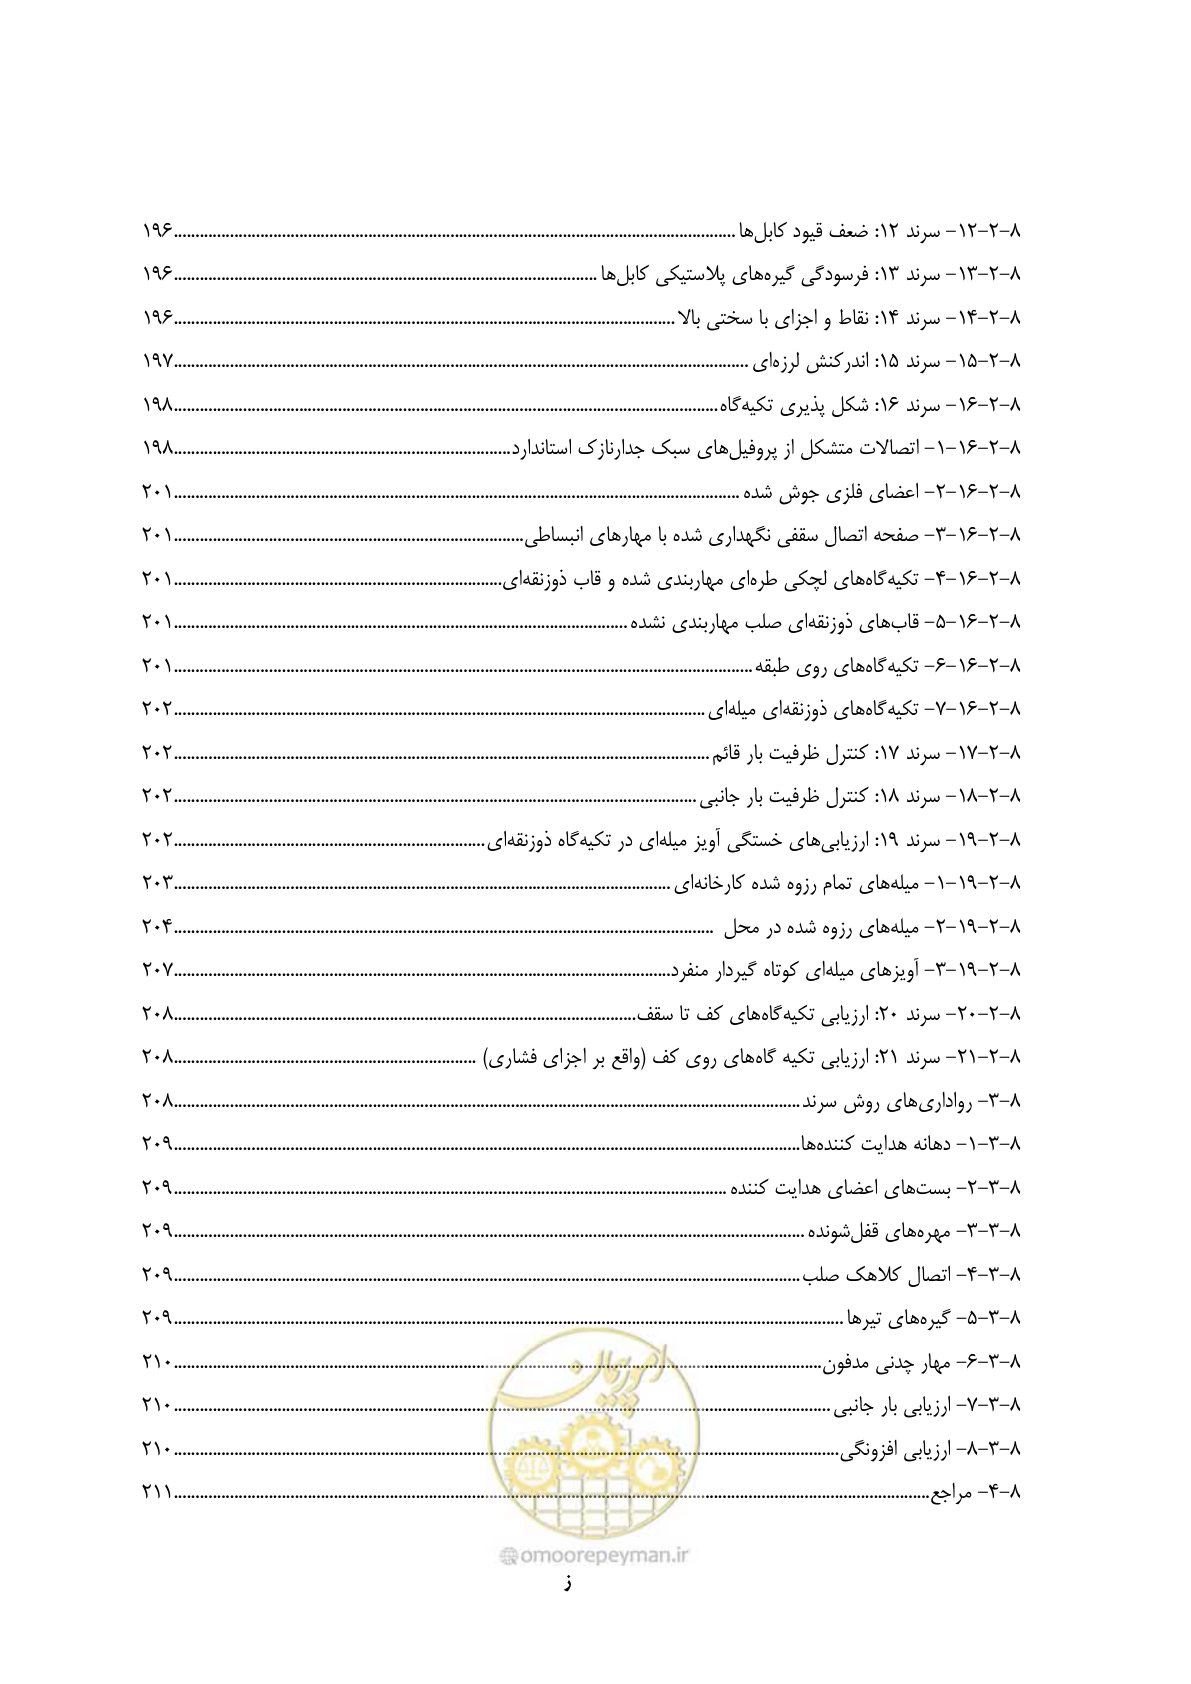 ۸-۲-۱۲- سرند ۱۲: ضعف قیود کابل‌ها ........ ۱۹۶
۸-۲-۱۳- سرند ۱۳: فرسودگی گیره‌های پلاستیکی کابل‌ها ........ ۱۹۶
۸-۲-۱۴- سرند ۱۴: نقاط و اجزای با سختی بالا ........ ۱۹۶
۸-۲-۱۵- سرند ۱۵: اندرکنش لرزه‌ای ........ ۱۹۷
۸-۲-۱۶- سرند ۱۶: شکل پذیری تکیه‌گاه ........ ۱۹۸
۸-۲-۱۶-۱- اتصالات متشکل از پروفیل‌های سبک جدارنازک استاندارد ........ ۱۹۸
۸-۲-۱۶-۲- اعضای فلزی جوش شده ........ ۲۰۱
۸-۲-۱۶-۳- صفحه اتصال سقفی نگهداری شده با مهارهای انبساطی ........ ۲۰۱
۸-۲-۱۶-۴- تکیه‌گاه‌های لچکی طره‌ای مهاربندی شده و قاب ذوزنقه‌ای ........ ۲۰۱
۸-۲-۱۶-۵- قاب‌های ذوزنقه‌ای صلب مهاربندی نشده ........ ۲۰۱
۸-۲-۱۶-۶- تکیه‌گاه‌های روی طبقه ........ ۲۰۱
۸-۲-۱۶-۷- تکیه‌گاه‌های ذوزنقه‌ای میله‌ای ........ ۲۰۲
۸-۲-۱۷- سرند ۱۷: کنترل ظرفیت بار قائم ........ ۲۰۲
۸-۲-۱۸- سرند ۱۸: کنترل ظرفیت بار جانبی ........ ۲۰۲
۸-۲-۱۹- سرند ۱۹: ارزیابی‌های خستگی آویز میله‌ای در تکیه‌گاه ذوزنقه‌ای ........ ۲۰۲
۸-۲-۱۹-۱- میله‌های تمام رزوه شده کارخانه‌ای ........ ۲۰۳
۸-۲-۱۹-۲- میله‌های رزوه شده در محل ........ ۲۰۴
۸-۲-۱۹-۳- آویزهای میله‌ای کوتاه گیردار منفرد ........ ۲۰۷
۸-۲-۲۰- سرند ۲۰: ارزیابی تکیه‌گاه‌های کف تا سقف ........ ۲۰۸
۸-۲-۲۱- سرند ۲۱: ارزیابی تکیه گاه‌های روی کف (واقع بر اجزای فشاری) ........ ۲۰۸
۸-۳- رواداری‌های روش سرند ........ ۲۰۸
۸-۳-۱- دهانه هدایت کننده‌ها ........ ۲۰۹
۸-۳-۲- بست‌های اعضای هدایت کننده ........ ۲۰۹
۸-۳-۳- مهره‌های قفل‌شونده ........ ۲۰۹
۸-۳-۴- اتصال کلاهک صلب ........ ۲۰۹
۸-۳-۵- گیره‌های تیرها ........ ۲۰۹
۸-۳-۶- مهار چدنی مدفون ........ ۲۱۰
۸-۳-۷- ارزیابی بار جانبی ........ ۲۱۰
۸-۳-۸- ارزیابی افزونگی ........ ۲۱۰
۸-۴- مراجع ........ ۲۱۱
امور پیمان
@omoorepeyman.ir
ز